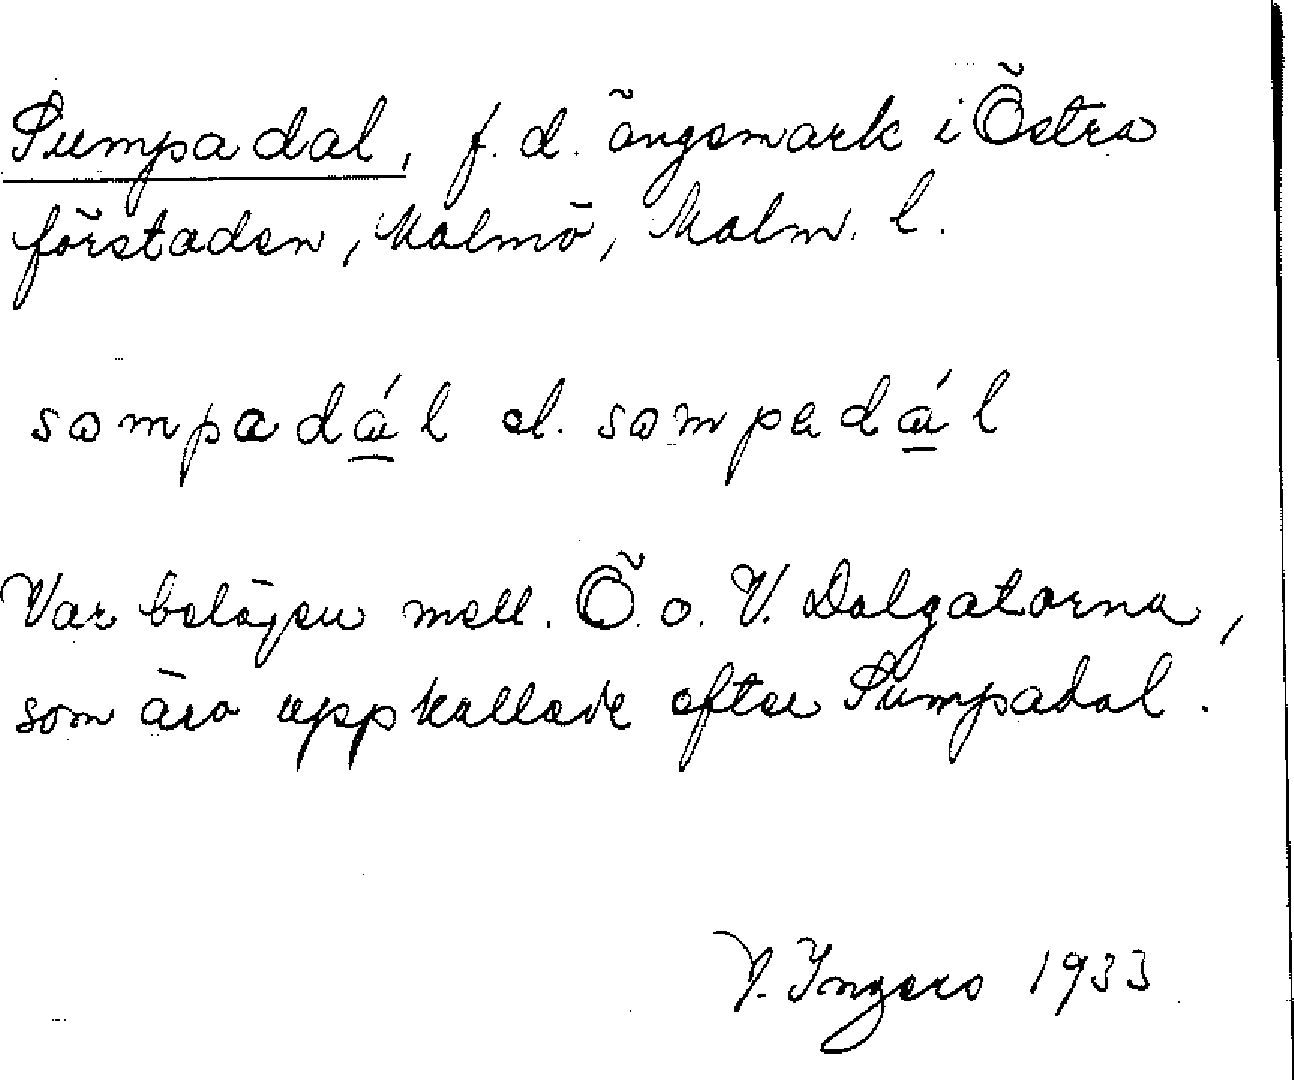 Sumpadal, f. d. ängsmark i Östra
förstaden, Malmö, Malm. l.
sompadál el. sompadál
Var belägen mell. Ö. o. V. Dalgatorna,
som äro uppkallade efter Sumpadal.
Ingers 1933